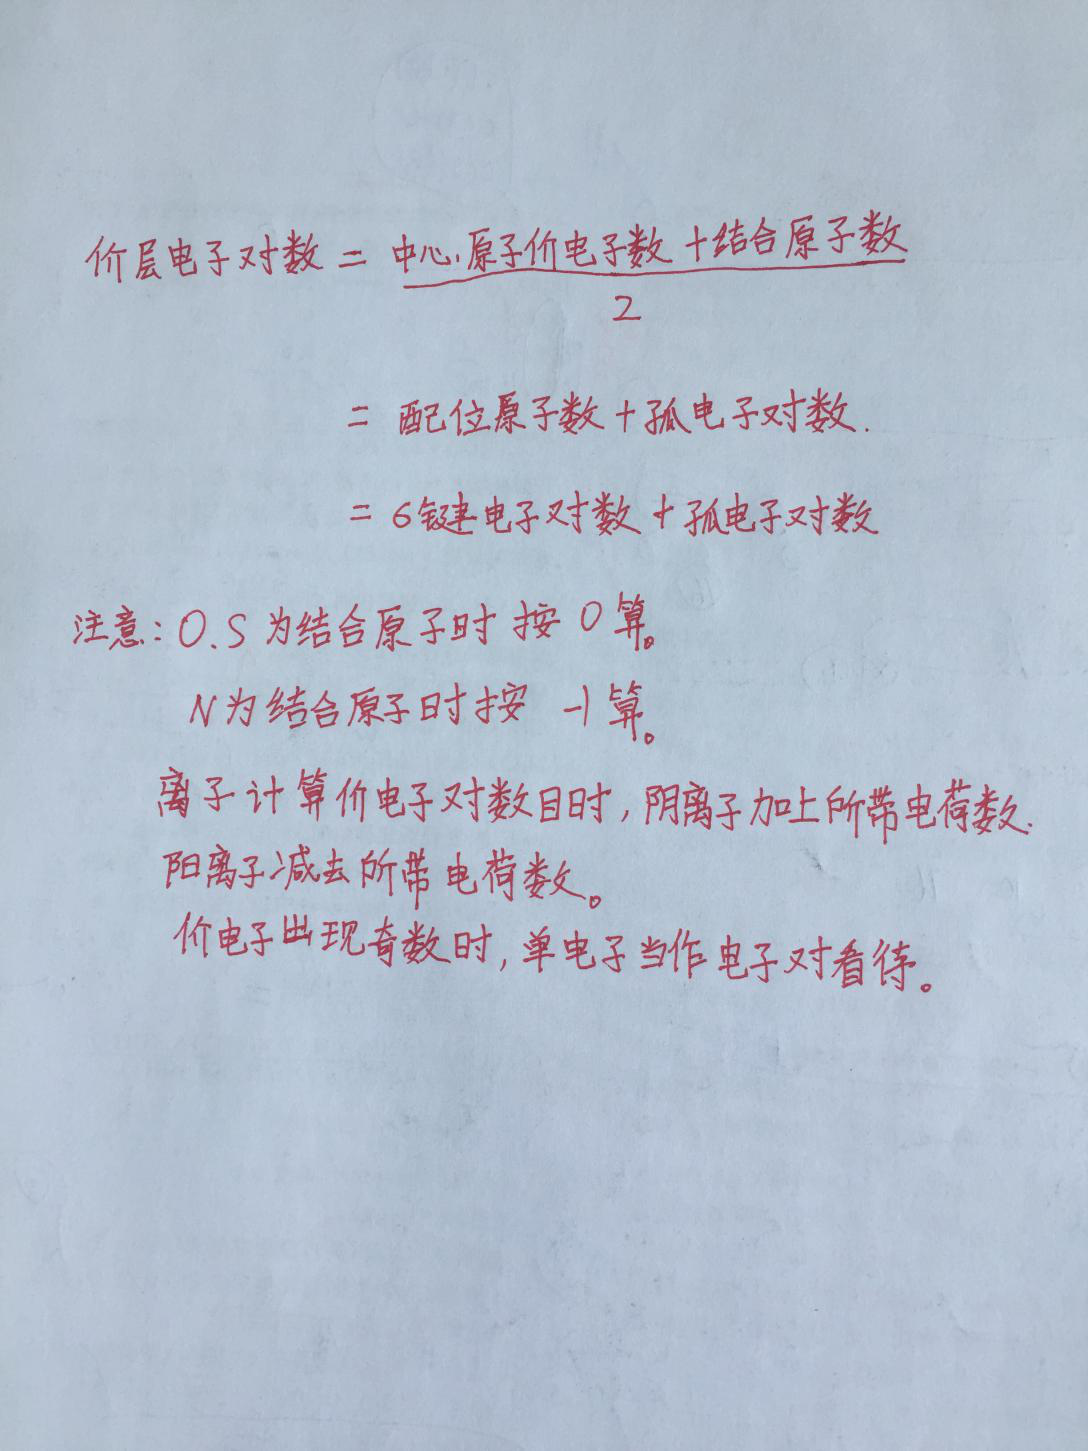 价层电子对数 = 中心原子价电子数 + 结合原子数
2
= 配位原子数 + 孤电子对数.
= 6键电子对数 + 孤电子对数
注意: O.S 为结合原子时 按 0 算。
N为结合原子时按 -1 算。
离子计算价电子对数目时, 阴离子加上所带电荷数.
阳离子减去所带电荷数。
价电子出现奇数时, 单电子当作电子对看待。